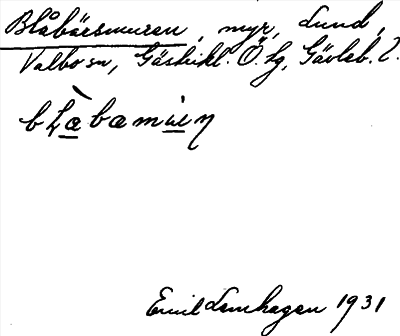 Blåbärsmuren, myr, Lund,
Valbo sn, Gästrikl. Ö. tg, Gävleb. l.
blàbamuen
Emil Lennhagen 1931